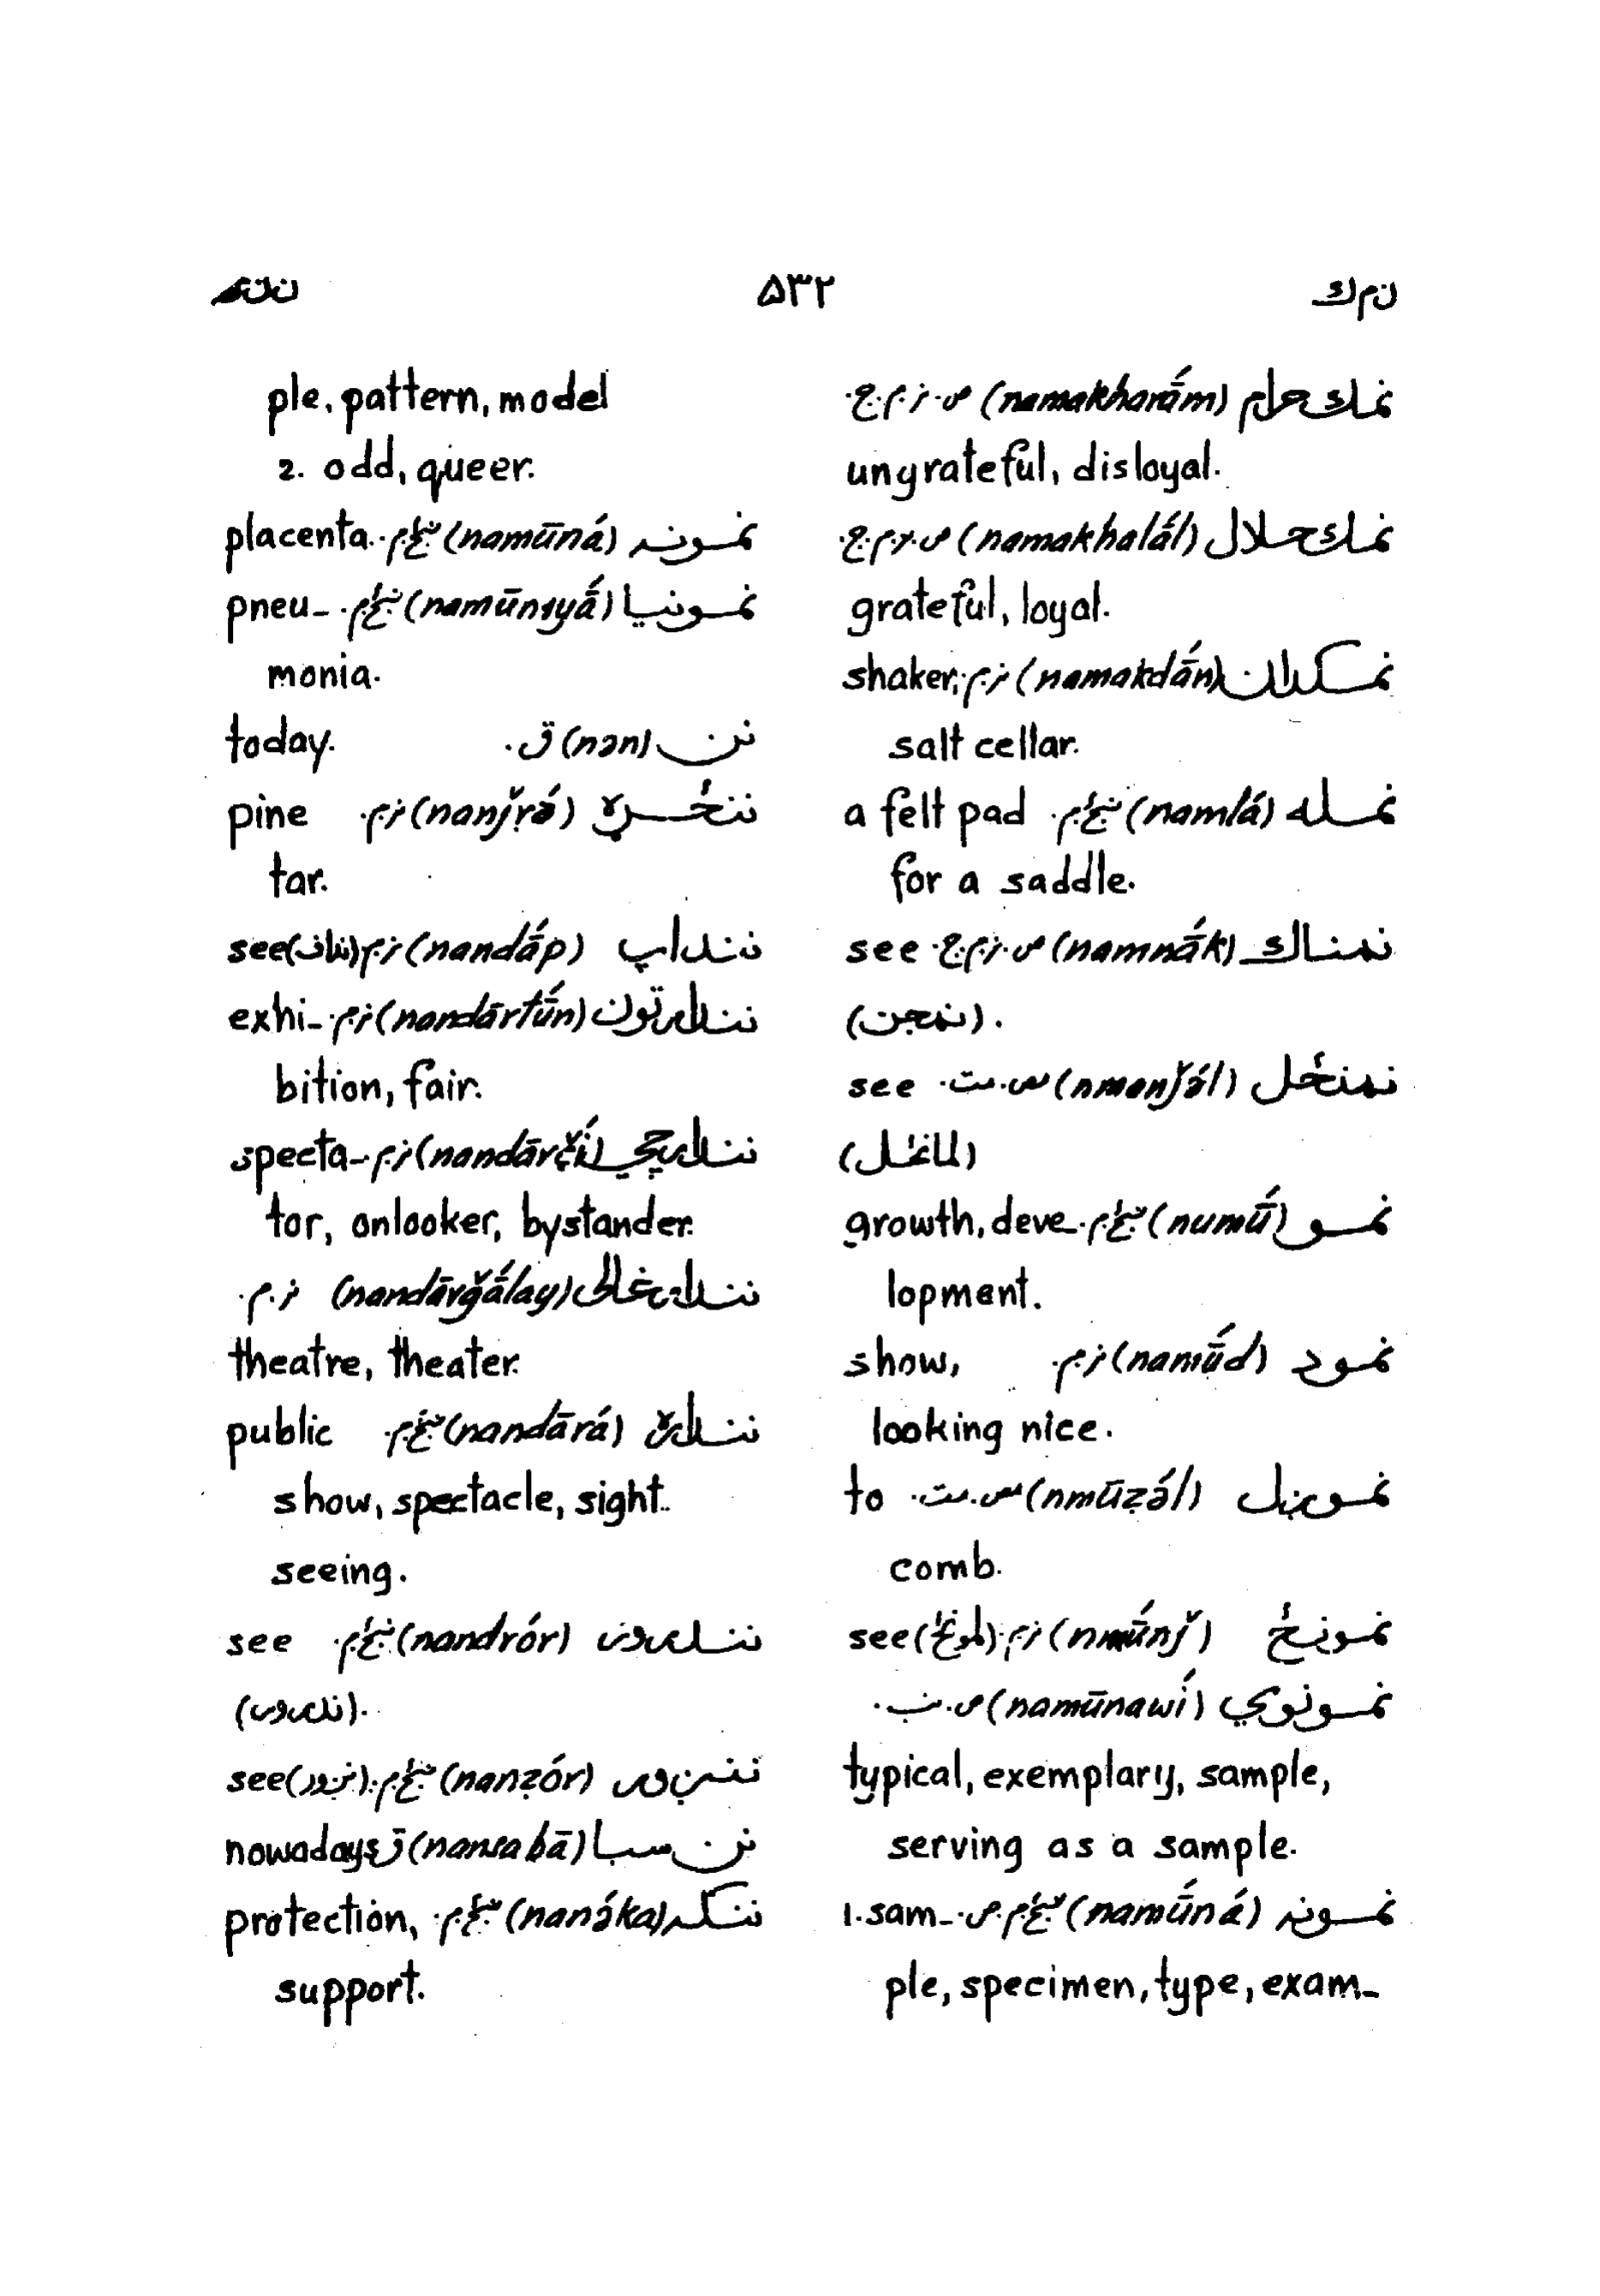 ن م ك ۵۳۲ ن ن ك
نمك حرام (namakharā́m) ص. ن. م. ج.
ungrateful, disloyal.
نمك حلال (namakhalā́l) ص. ن. م. ج.
grateful, loyal.
نمکدان (namakdā́n) ن. م. shaker,
salt cellar.
نمله (namlá) ښځ. م. a felt pad
for a saddle.
نمناك (namnā́k) ص. ن. م. ج. see
(نمجن).
نمنځل (nmanǰə́l) س. مت. see
(لمانځل)
نمو (numū́) ښځ. م. growth, deve-
lopment.
نمود (namū́d) ن. م. show,
looking nice.
نمونږل (nmūẓə́l) س. مت. to
comb.
نمونځ (nmū́nǰ) ن. م. (لمونځ) see
نمونوي (namūnawí) ص. نب.
typical, exemplary, sample,
serving as a sample.
نمونه (namū́ná) ښځ. م. ص. 1. sam-
ple, specimen, type, exam-
ple, pattern, model
2. odd, queer.
نمونه (namūná) ښځ. م. placenta.
نمونيا (namūnɪyā́) ښځ. م. pneu-
monia.
نن (nən) ق. today.
ننځړه (nanǰṛə́) ن. م. pine
tar.
ننداپ (nandā́p) ن. م. (نداف) see
نندارتون (nandārtū́n) ن. م. exhi-
bition, fair.
نندارچي (nandārčí) ن. م. specta-
tor, onlooker, bystander.
نندارځالی (nandārǧā́lay) ن. م.
theatre, theater.
ننداره (nandārá) ښځ. م. public
show, spectacle, sight.
seeing.
نندرور (nandrór) ښځ. م. see
(ندرور).
ننږور (nanẓór) ښځ. م. (نږور) see
نن سبا (nansabā) ق. nowadays
ننکه (nanə́ka) ښځ. م. protection,
support.